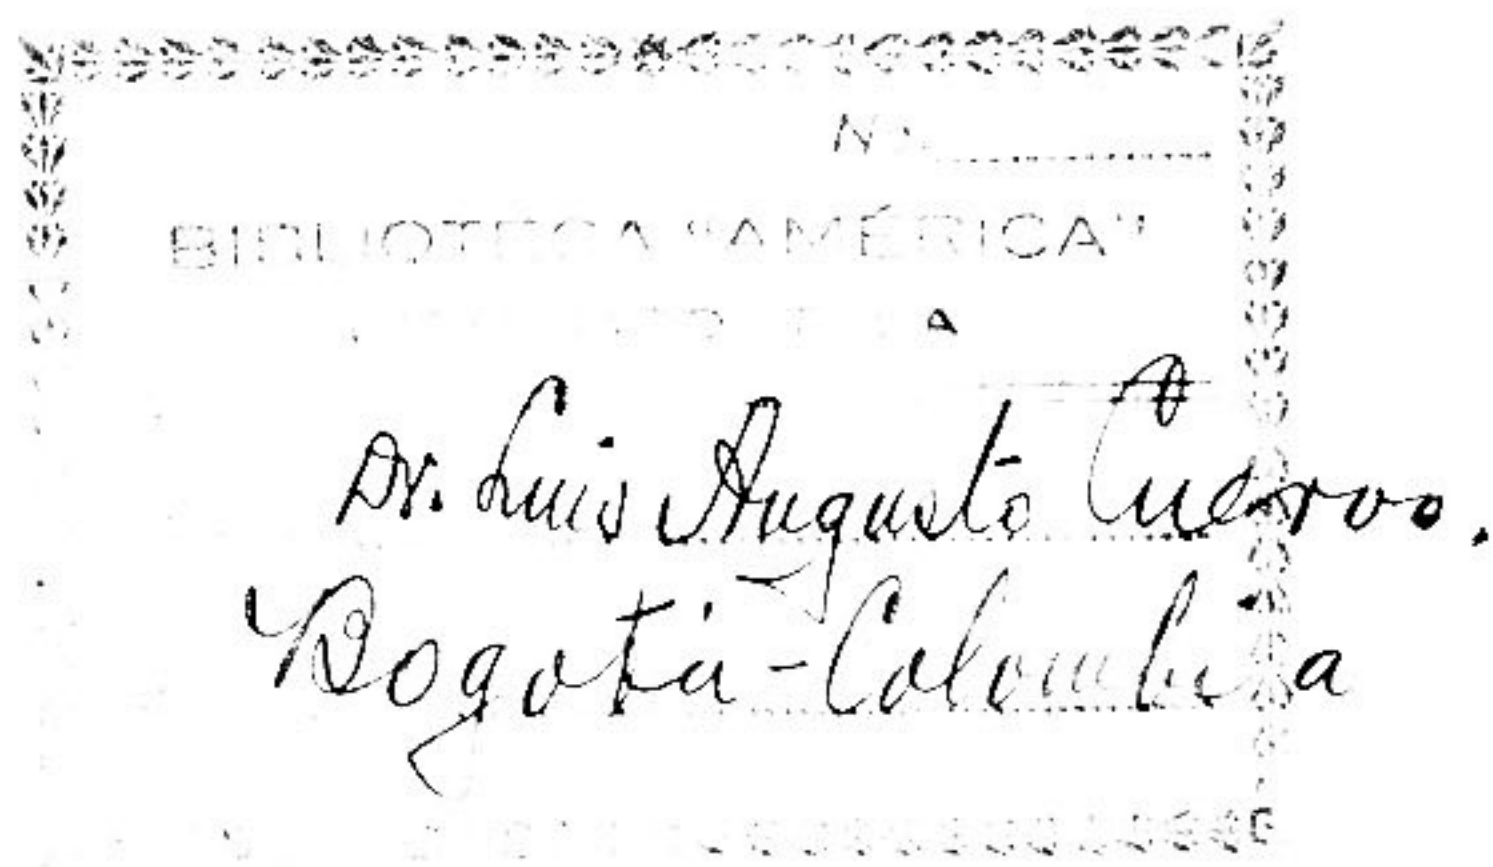 No. 
BIBLIOTECA "AMÉRICA"
Dr. Luis Augusto Cuervo.
Bogotá - Colombia